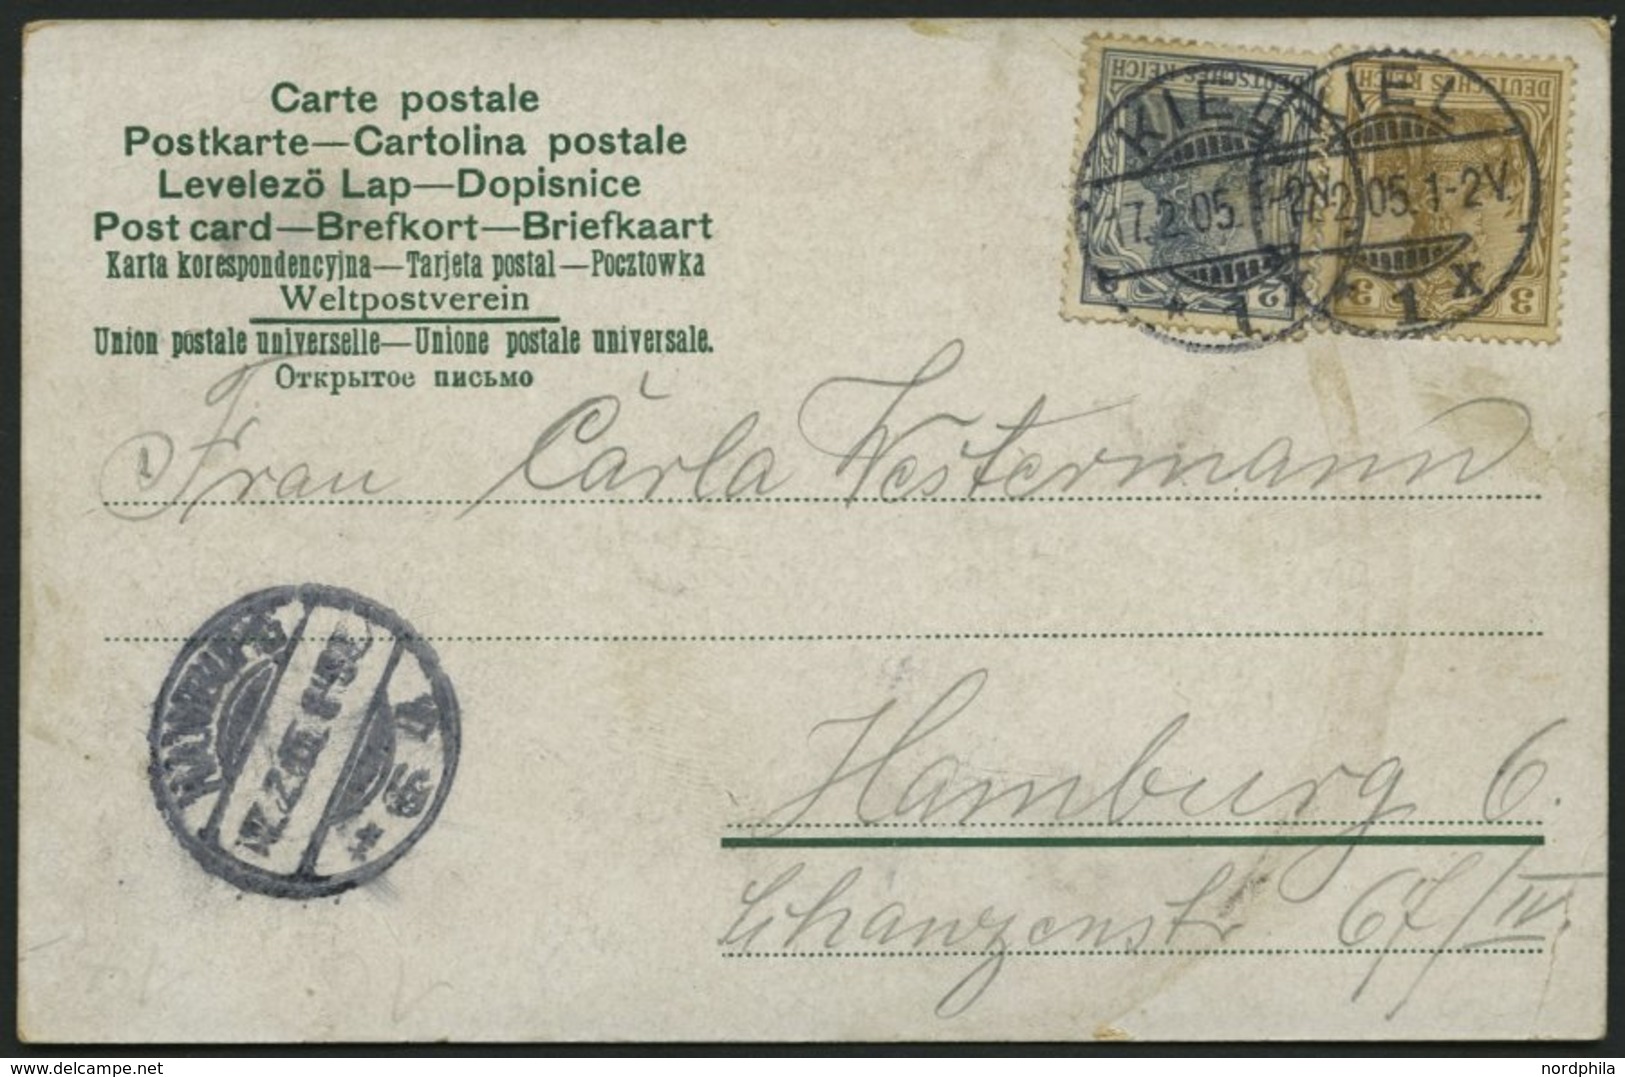 Carte postale
Postkarte—Cartolina postale
Levelezö Lap—Dopisnice
Post card—Brefkort—Briefkaart
Karta korespondencyjna—Tarjeta postal—Pocztowka
Weltpostverein
Union postale universelle—Unione postale universale.
Открытое письмо
DEUTSCHES REICH
2
DEUTSCHES REICH
3 3
KIEL
17.2.05.1-2V.
* 1 x
KIEL
2.05.1-2V.
1 x
Frau Carla Westermann
HAMBURG
17.2.05
* 6 *
Hamburg 6.
Schanzenstr 67/IV.
delcampe.net
nordphila